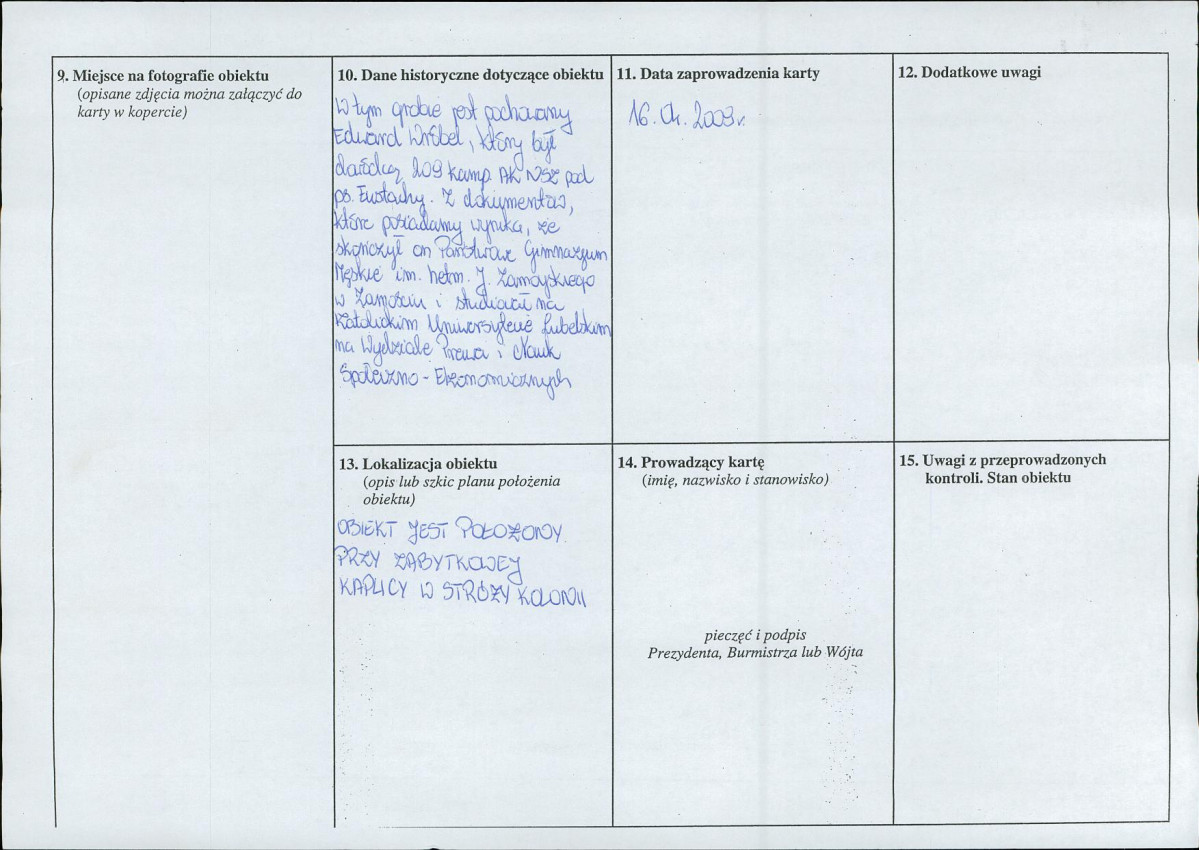 9. Miejsce na fotografie obiektu
(opisane zdjęcia można załączyć do
karty w kopercie)
10. Dane historyczne dotyczące obiektu
W tym grobie jest pochowany
Edward Wróbel, który był
209 kamp. AK NSZ pod
ps. Eustachy. Z dokumentów,
które posiadamy wynika, że
skończył on Państwowe Gimnazjum
Męskie im. hetm. J. Zamoyskiego
w Zamościu i studiował na
Katolickim Uniwersytecie Lubelskim
na Wydziale Prawa i Nauk
Społeczno - Ekonomicznych
11. Data zaprowadzenia karty
2009r.
12. Dodatkowe uwagi
13. Lokalizacja obiektu
(opis lub szkic planu położenia
obiektu)
OBIEKT JEST POŁOŻONY
PRZY ZABYTKOWEJ
KAPLICY W STRÓŻY KOLONII
14. Prowadzący kartę
(imię, nazwisko i stanowisko)
pieczęć i podpis
Prezydenta, Burmistrza lub Wójta
15. Uwagi z przeprowadzonych
kontroli. Stan obiektu